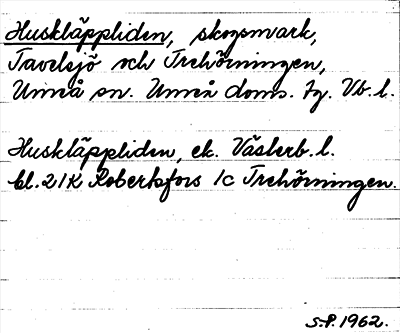 Huskläppliden, skogsmark,
Tavelsjö och Trehörningen,
Umeå sn. Umeå doms. tg. Vb. l.
Huskläppliden, ek. Västerb. l.
bl. 21K Robertsfors 1c Trehörningen.
S.P. 1962.